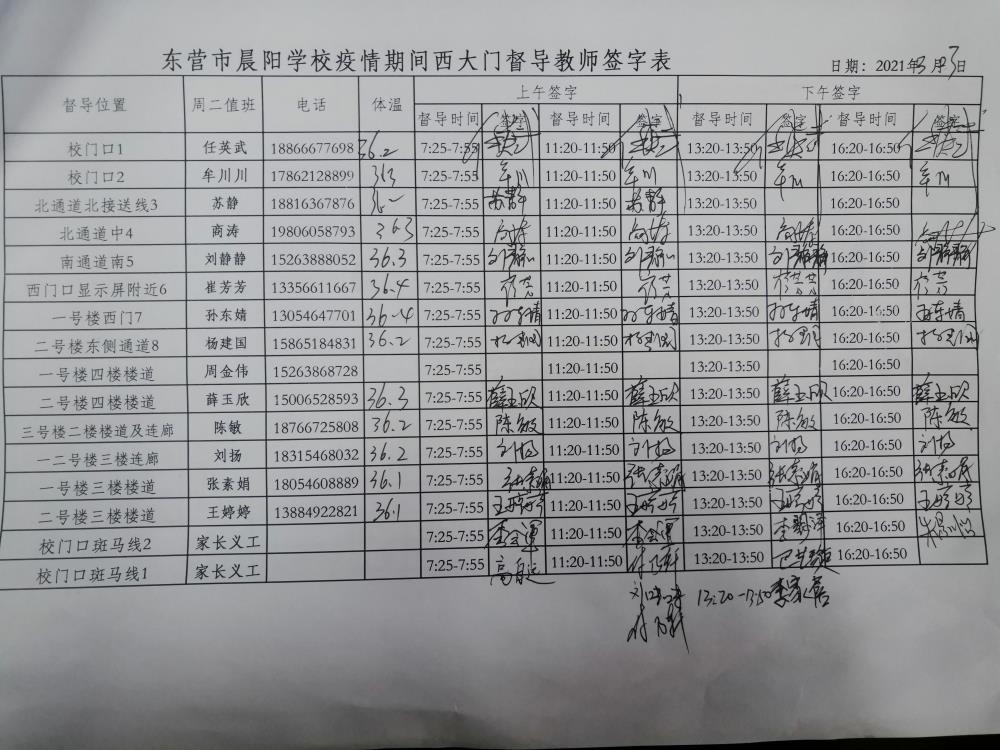 东营市晨阳学校疫情期间西大门督导教师签字表
日期：2021年3月3日
督导位置 周二值班 电话 体温 上午签字 下午签字
督导时间 签字 督导时间 签字 督导时间 签字 督导时间 签字
校门口1 任英武 18866677698 36.2 7:25-7:55 11:20-11:50 13:20-13:50 16:20-16:50
校门口2 牟川川 17862128899 363 7:25-7:55 牟川 11:20-11:50 牟川 13:20-13:50 牟川 16:20-16:50 牟川
北通道北接送线3 苏静 18816367876 7:25-7:55 苏静 11:20-11:50 苏静 13:20-13:50 16:20-16:50
北通道中4 商涛 19806058793 363 7:25-7:55 商涛 11:20-11:50 商涛 13:20-13:50 商涛 16:20-16:50
南通道南5 刘静静 15263888052 36.3 7:25-7:55 11:20-11:50 13:20-13:50 刘静静 16:20-16:50 刘静静
西门口显示屏附近6 崔芳芳 13356611667 36.4 7:25-7:55 11:20-11:50 13:20-13:50 16:20-16:50
一号楼西门7 孙东婧 13054647701 36.4 7:25-7:55 孙东婧 11:20-11:50 孙东婧 13:20-13:50 孙东婧 16:20-16:50 孙东婧
二号楼东侧通道8 杨建国 15865184831 36.2 7:25-7:55 杨建国 11:20-11:50 杨建国 13:20-13:50 杨建国 16:20-16:50 杨建国
一号楼四楼楼道 周金伟 15263868728 7:25-7:55 11:20-11:50 13:20-13:50 16:20-16:50
二号楼四楼楼道 薛玉欣 15006528593 36.3 7:25-7:55 薛玉欣 11:20-11:50 薛玉欣 13:20-13:50 薛玉欣 16:20-16:50 薛玉欣
三号楼二楼楼道及连廊 陈敏 18766725808 36.2 7:25-7:55 陈敏 11:20-11:50 陈敏 13:20-13:50 陈敏 16:20-16:50 陈敏
一二号楼三楼连廊 刘扬 18315468032 36.2 7:25-7:55 刘扬 11:20-11:50 刘扬 13:20-13:50 刘扬 16:20-16:50 刘扬
一号楼三楼楼道 张素娟 18054608889 36.1 7:25-7:55 张素娟 11:20-11:50 张素娟 13:20-13:50 张素娟 16:20-16:50 张素娟
二号楼三楼楼道 王婷婷 13884922821 36.1 7:25-7:55 王婷婷 11:20-11:50 王婷婷 13:20-13:50 王婷婷 16:20-16:50 王婷婷
校门口斑马线2 家长义工 7:25-7:55 11:20-11:50 13:20-13:50 16:20-16:50
校门口斑马线1 家长义工 7:25-7:55 11:20-11:50 13:20-13:50 16:20-16:50
13:20-13:50